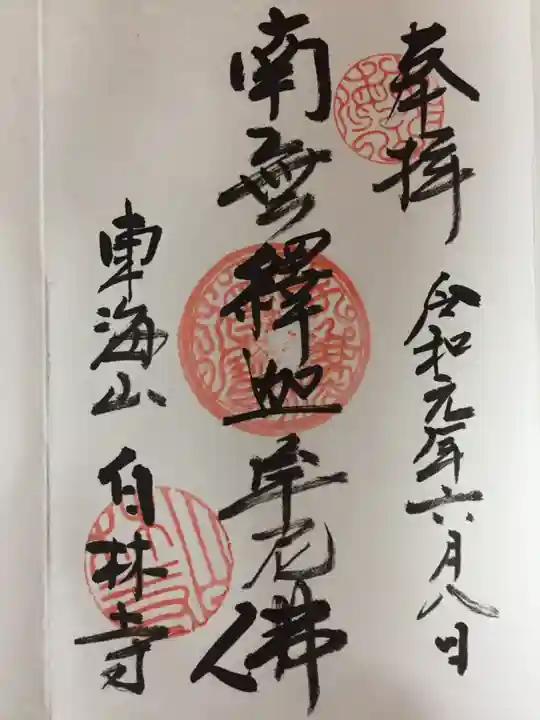 奉拝
令和元年六月八日
南無釋迦牟尼佛
東海山 白林寺